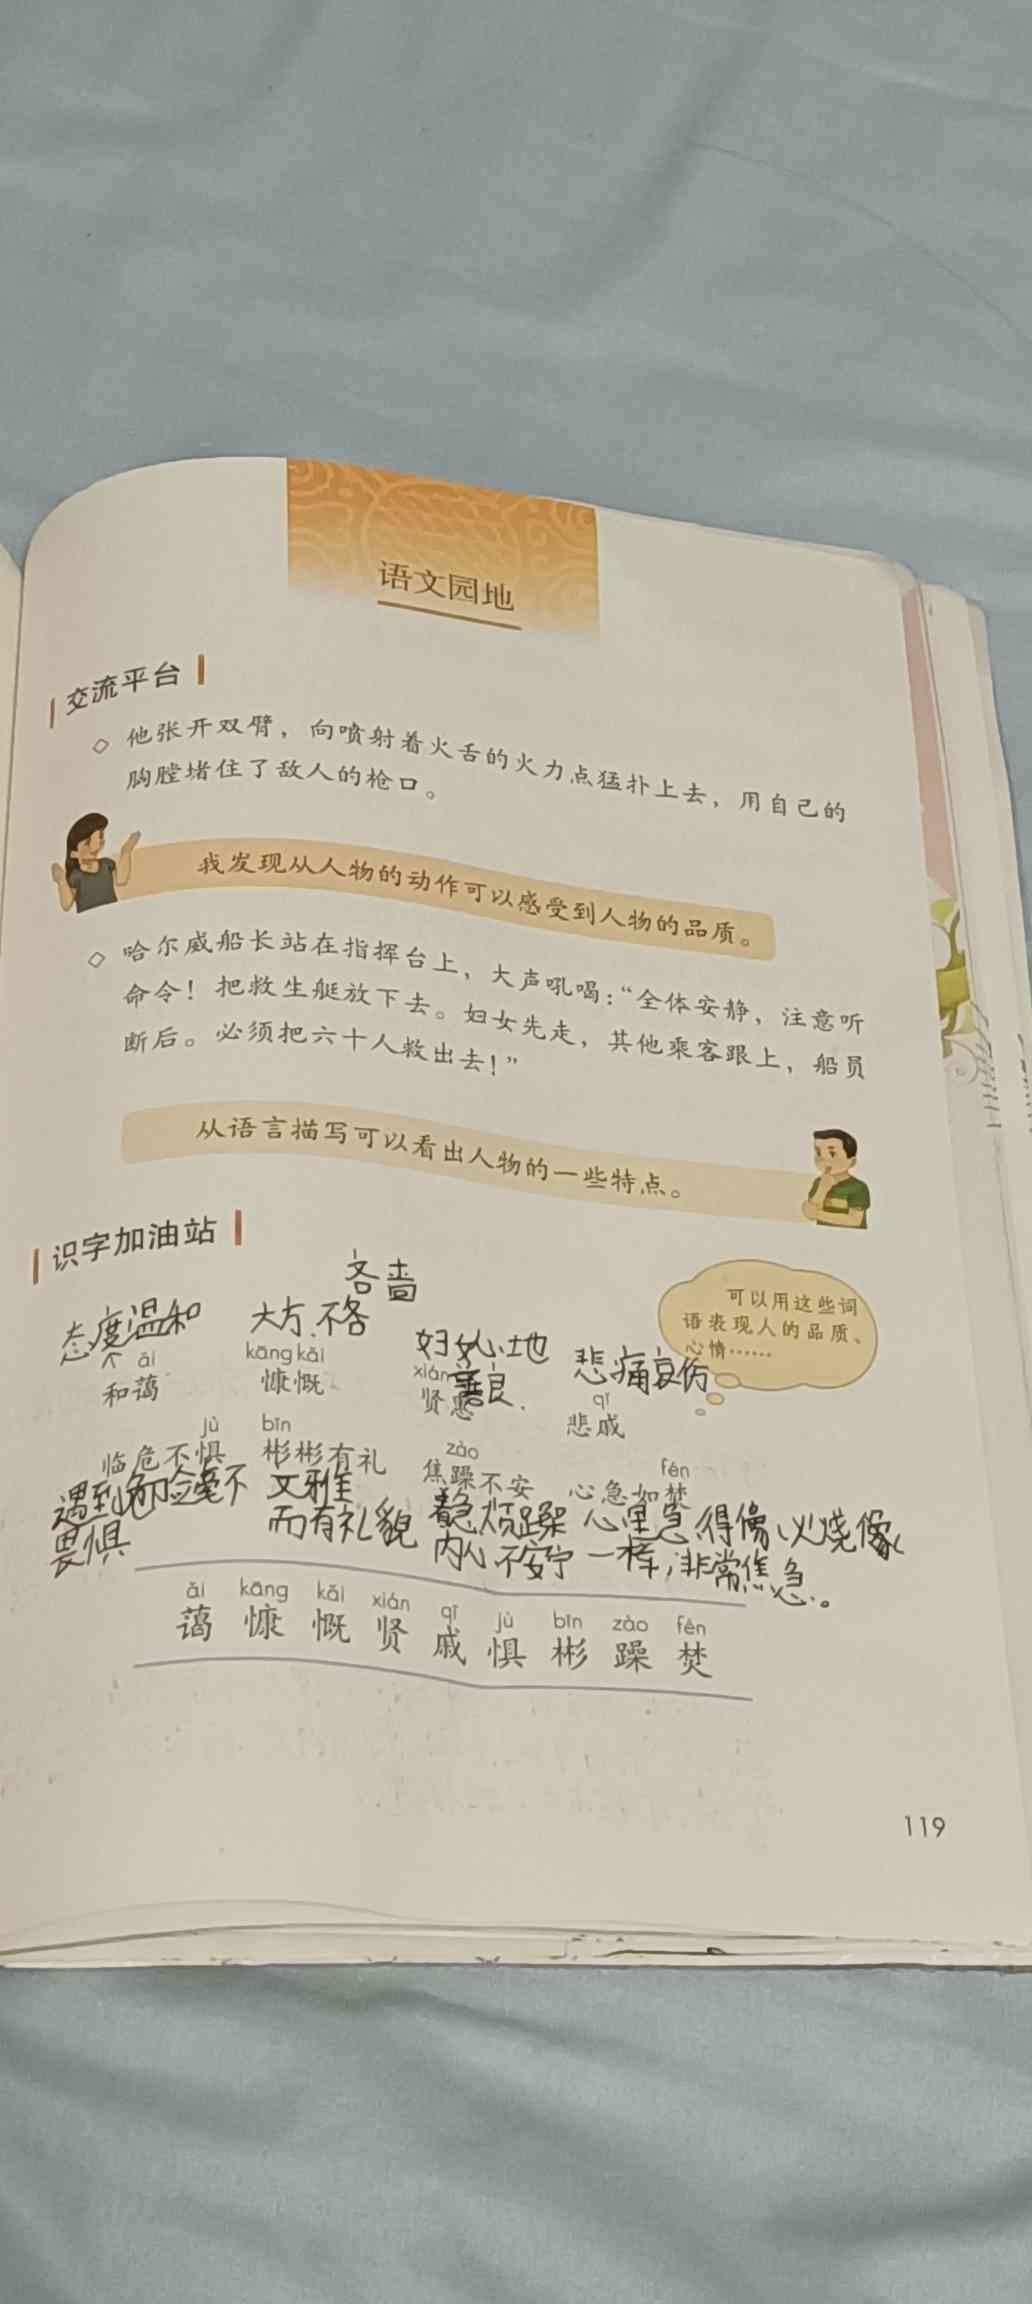 语文园地
交流平台
◇ 他张开双臂，向喷射着火舌的火力点猛扑上去，用自己的
胸膛堵住了敌人的枪口。
我发现从人物的动作可以感受到人物的品质。
◇ 哈尔威船长站在指挥台上，大声吼喝：“全体安静，注意听
命令！把救生艇放下去。妇女先走，其他乘客跟上，船员
断后。必须把六十人救出去！”
从语言描写可以看出人物的一些特点。
识字加油站
可以用这些词
语表现人的品质、
心情……
吝啬
态度温和 大方、不吝
妇女心地
善良.
悲痛哀伤
ǎi kāng kǎi xián qī
和蔼 慷慨 贤惠 悲戚
jù bīn zào fén
临危不惧 彬彬有礼 焦躁不安 心急如焚
遇到危险毫不
畏惧
文雅
而有礼貌
着急烦躁
内心不安宁
心里急得像火烧像
一样，非常焦急。
ǎi kāng kǎi xián qī jù bīn zào fén
蔼 慷 慨 贤 戚 惧 彬 躁 焚
119